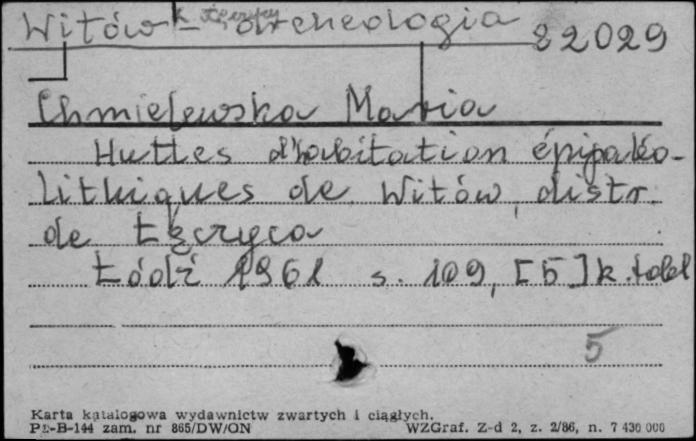 Witów k. Łęczycy - archeologia
22029
Chmielewska Maria
Huttes d'habitation épipaléo-
lithiques de Witów, distr.
de Łęczyca
Łódź 1961 s. 109, [5] k. tabl
5
Karta katalogowa wydawnictw zwartych i ciągłych.
Pu-B-144 zam. nr 865/DW/ON WZGraf. Z-d 2, z. 2/86, n. 7 430 000